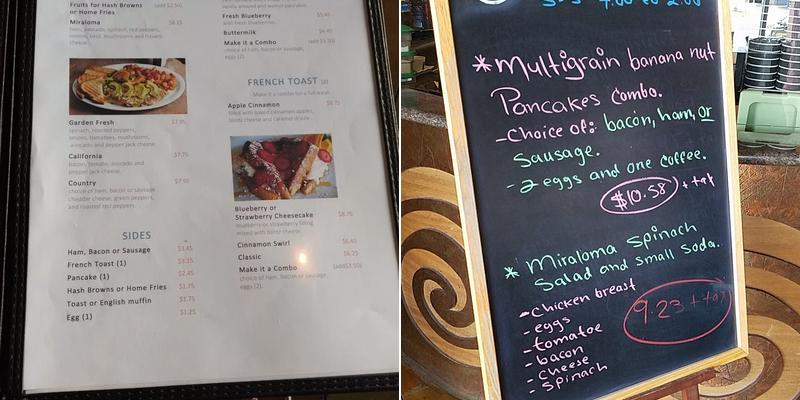 Fruits for Hash Browns (add $2.50)
or Home Fries
Miraloma $8.15
ham, avocado, spinach, red peppers,
onions, basil, mushrooms and havarti
cheese.
Garden Fresh $7.95
spinach, roasted peppers,
onions, tomatoes, mushrooms,
avocado and pepper jack cheese.
California $7.75
bacon, tomato, avocado and
pepper jack cheese.
Country $7.90
choice of ham, bacon or sausage
cheddar cheese, green peppers,
and roasted red peppers.
SIDES
Ham, Bacon or Sausage $3.45
French Toast (1) $3.25
Pancake (1) $2.45
Hash Browns or Home Fries $1.75
Toast or English muffin $1.75
Egg (1) $1.25
vanilla almond and walnut pancake.
Fresh Blueberry $5.45
with fresh blueberries.
Buttermilk $4.45
Make it a Combo (add $3.50)
choice of ham, bacon or sausage,
eggs (2)
FRENCH TOAST (2)
Make it a combo for a full meal
Apple Cinnamon $8.75
filled with baked cinnamon apples,
blintz cheese and caramel drizzle.
Blueberry or
Strawberry Cheesecake $8.75
blueberry or strawberry filling
mixed with blintz cheese.
Cinnamon Swirl $6.40
Classic $6.25
Make it a Combo (add$3.50)
choice of ham, bacon or sausage,
eggs (2).
*Multigrain banana nut
Pancakes combo.
-Choice of: bacon, ham, or
sausage.
-2 eggs and one coffee.
$10.58 ++tax
* Miraloma Spinach
Salad and small soda.
-chicken breast
-eggs
-tomatoe
-bacon
-cheese
-spinach
9.23 ++tax